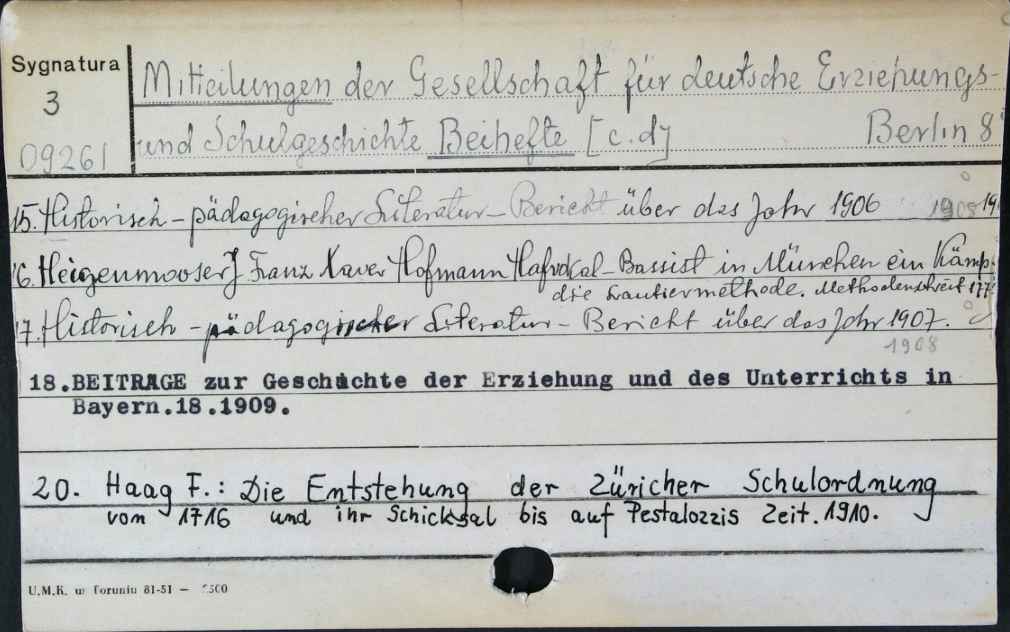 Sygnatura
3
09261
Mitteilungen der Gesellschaft für deutsche Erziehungs-
und Schulgeschichte Beihefte [c.d] Berlin 8°
15. Historisch-pädagogischer Literatur-Bericht über das Jahr 1906 1908
16. Heigenmooser J Franz Xaver Hofmann Hafvokal-Bassist in München ein Kämp
die Lautiermethode. Methodenstreit 177
17. Historisch-pädagogischer Literatur-Bericht über das Jahr 1907.
1908
18. BEITRAGE zur Geschichte der Erziehung und des Unterrichts in
Bayern.18.1909.
20. Haag F.: Die Entstehung der Züricher Schulordnung
von 1716 und ihr Schicksal bis auf Pestalozzis Zeit. 1910.
U.M.K. w Toruniu 81-51 —